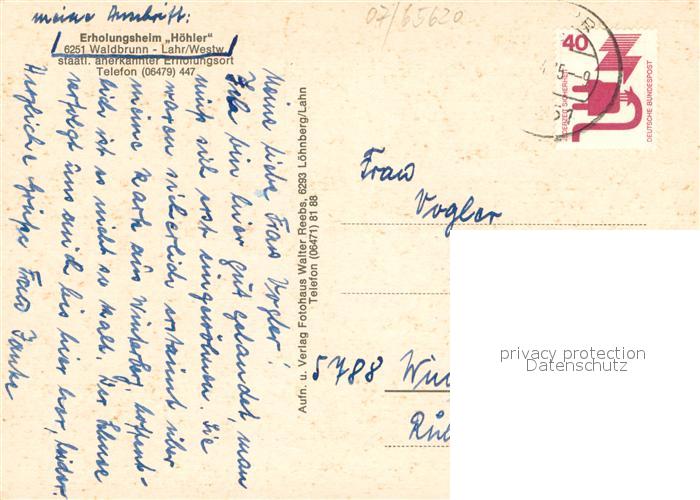 meine Anschrift:
Erholungsheim „Höhler"
6251 Waldbrunn - Lahr/Westw.
staatl. anerkannter Erholungsort
Telefon (06479) 447
07/65620
Meine liebe Frau Vogler!
Ich bin hier gut gelandet, man
muß sich erst eingewöhnen. Sie
waren sicherlich erstaunt über
meine Karte aus Winterberg, hoffent-
lich ist es nicht so kalt. Der Schnee
verfolgt uns auch bis hier her, leider.
Herzliche Grüße Frau
Aufn. u. Verlag Fotohaus Walter Reebs, 6293 Löhnberg/Lahn
Telefon (06471) 81 88
40
JEDERZEIT SICHERHEIT
DEUTSCHE BUNDESPOST
Frau
Vogler
5788
privacy protection
Datenschutz